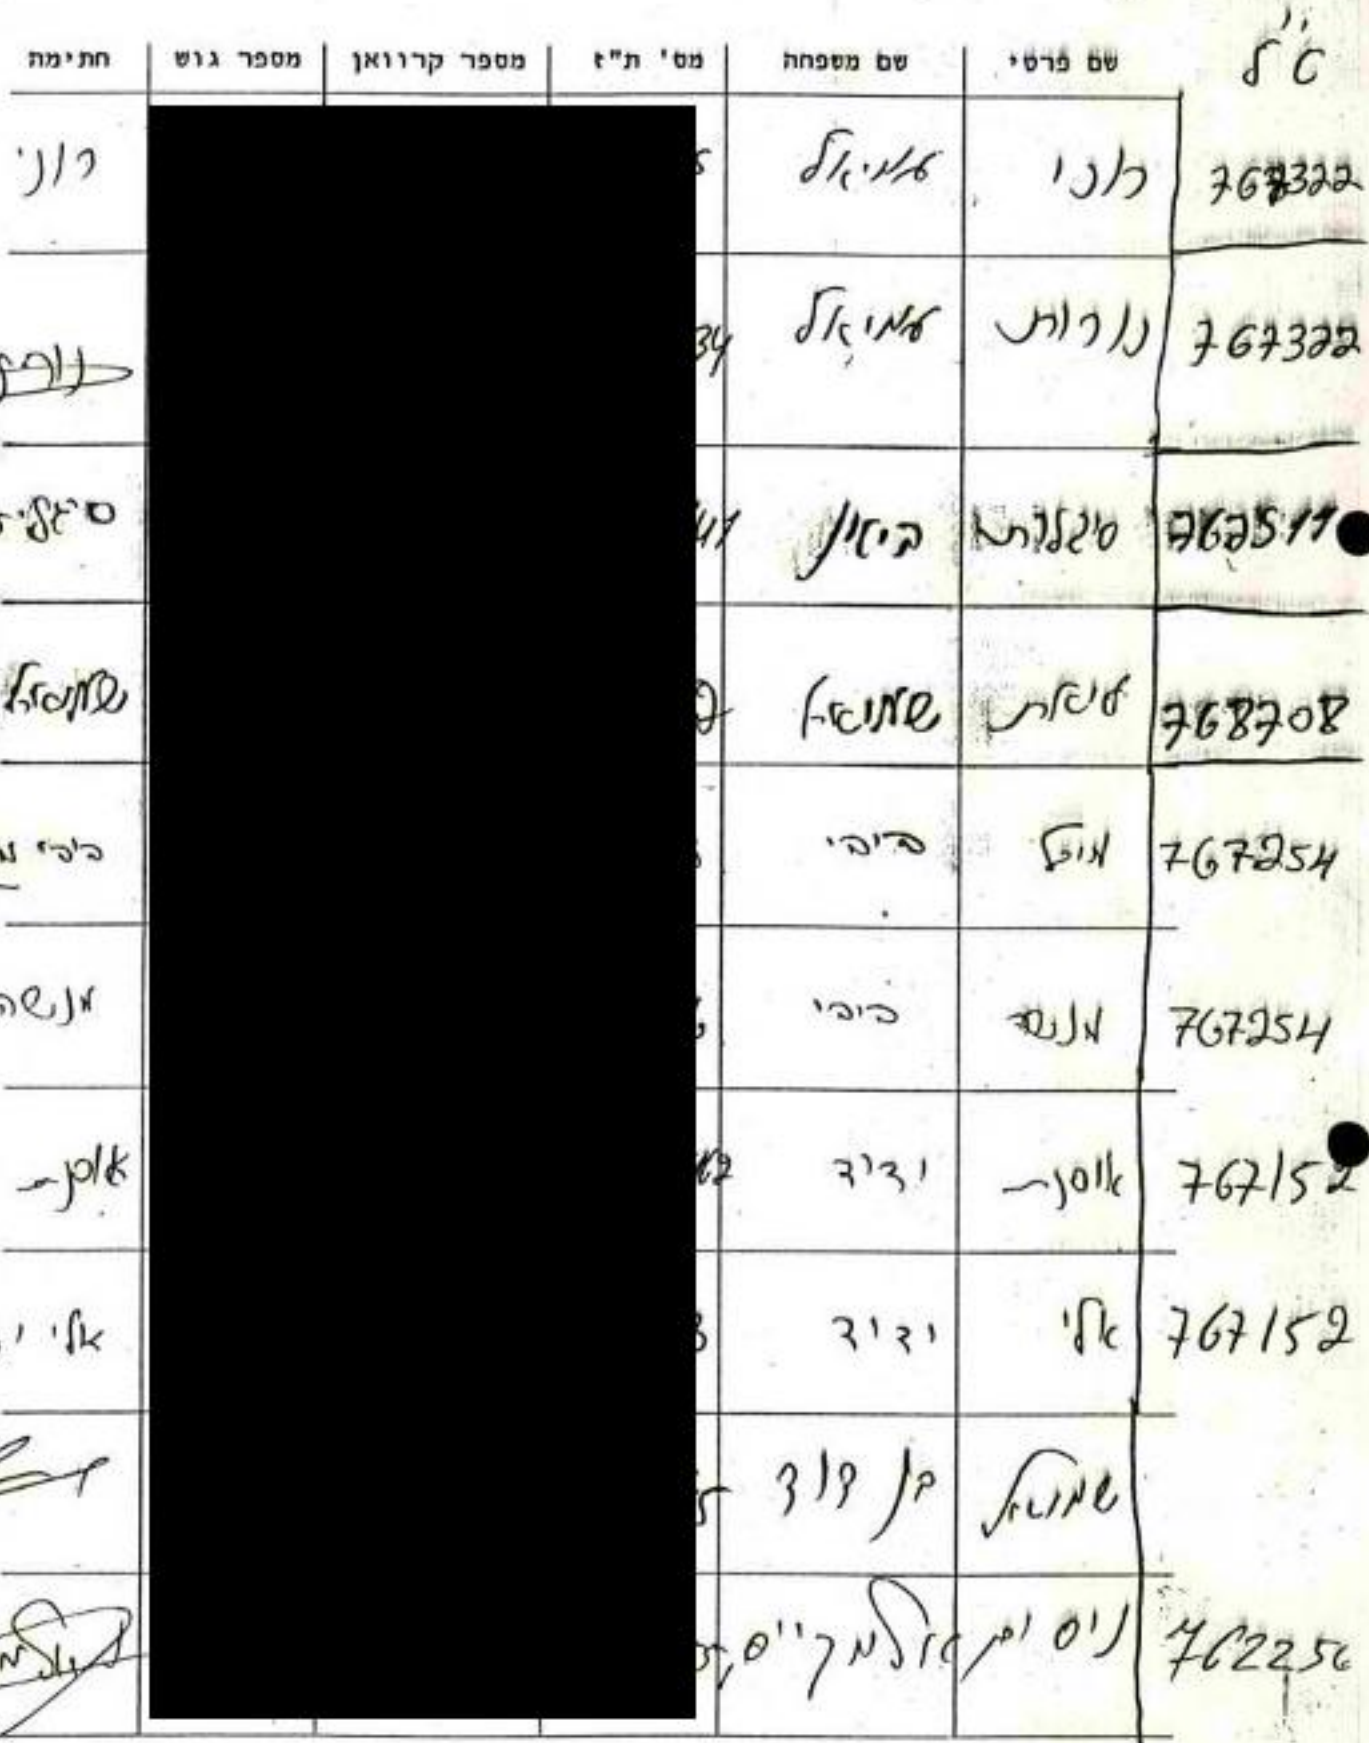 ט"ל שם פרטי שם משפחה מס' ת"ז מספר קרוואן מספר גוש חתימה
767322 רוני עמיאל רוני
767322 נורית עמיאל 34
767511 סיגלית ביאין 41
768708 שמואל שמואל
767254 ביבי ביבי
767254 מנשה ביבי מנשה
767152 אוסנת ידיד 62 אוסנת
767152 אלי ידיד 3 אלי י
שמואל בן דוד
ניסים